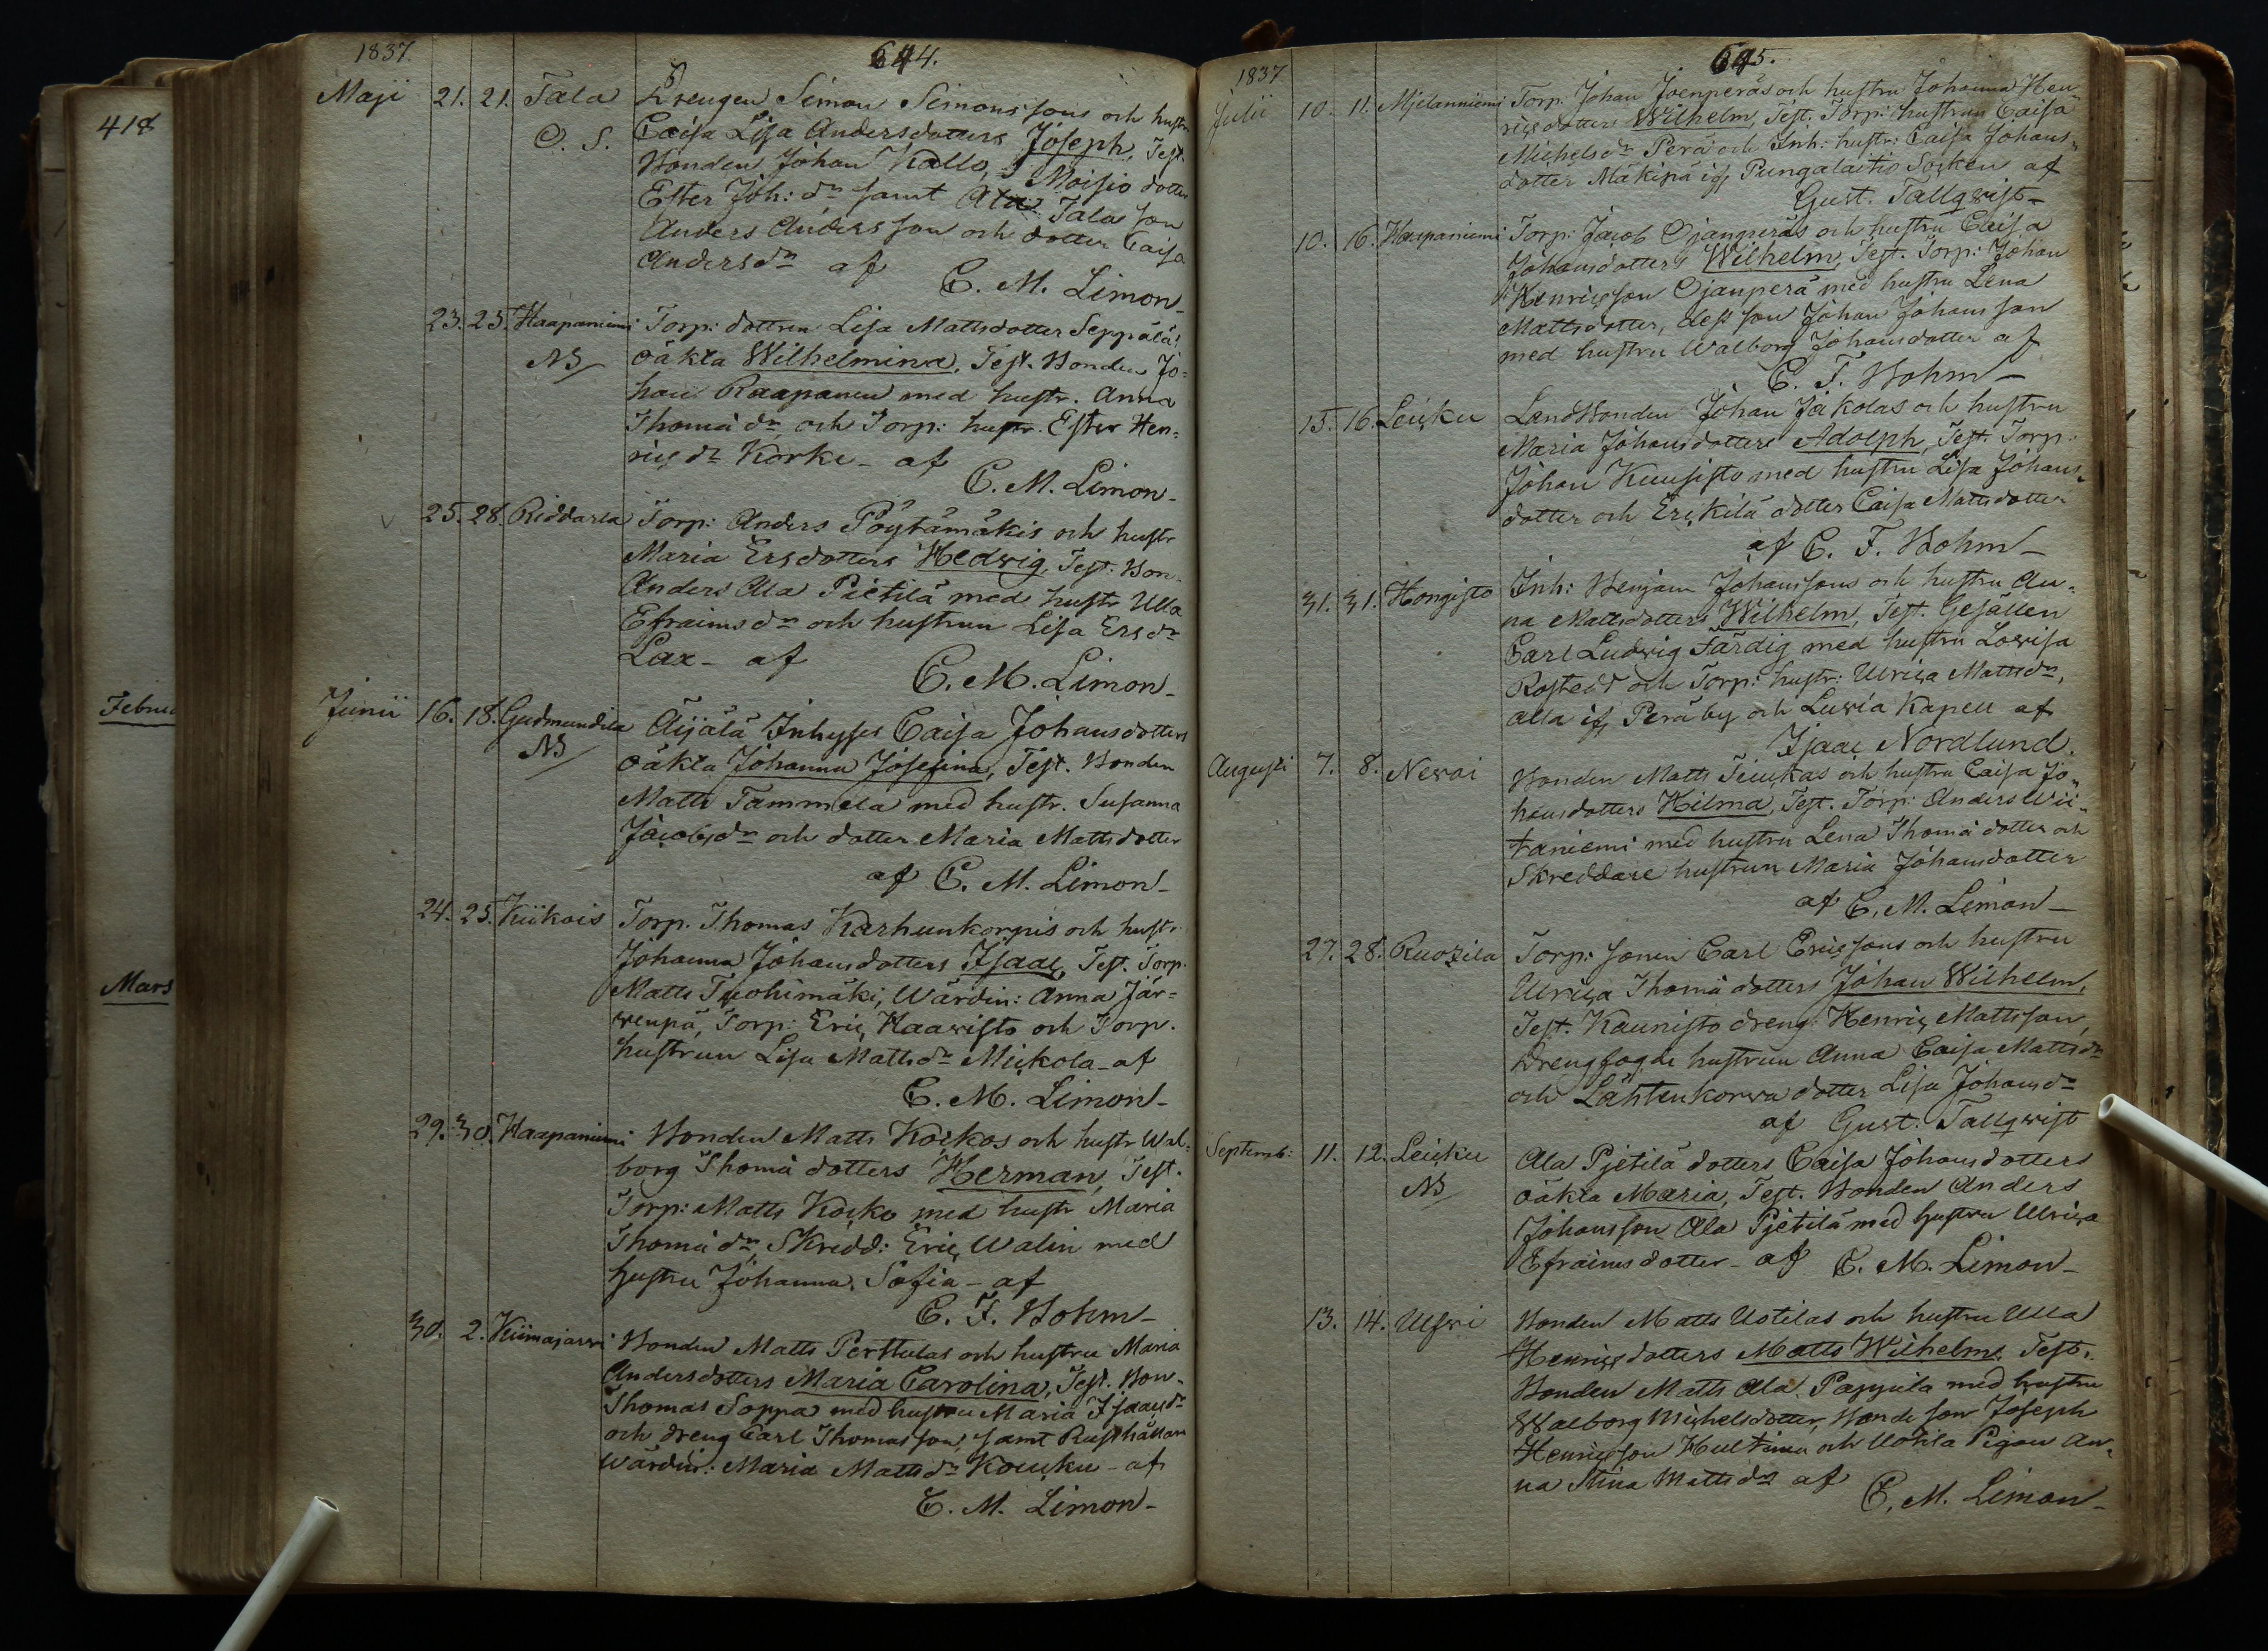 418
Februa
Mars
1837.
644.
Maji 21. 21. Tala Drengen Simon Simonssons och hustr
O. S. Caisa Lisa Andersdotters Joseph, Test.
Bonden Johan Kallo, Moisio dotter
Ester Joh: dr samt Ala Tala son
Anders Andersson och dotter Caisa
Andersdr af
C. M. Limon
23. 25. Haapaniemi Torp: dottren Lisa Mattsdotter Seppälä:
NB oäkta Wilhelmina, Test. Bonden Jo=
han Raapanen med hustr. Anna
Thomä dr och Torp: hustr. Ester Hen=
rics dr Korke - af
C. M. Limon-
25. 28. Riddarla Torp: Anders Pöytämäkis och hustr
Maria Ersdotters Hedwig, Test. Bon.
Anders Ala Pietilä med hustr Ulla
Efraims dr och hustrun Lisa Ers dr
Lax - af
C. M. Limon-
Junii 16. 18. Gudmundila Äijälä Inhyses Caisa Johansdotters
NB oäkta Johanna Josefina, Test. Bonden
Matts Tammela med hustr. Susanna
Jacobsdr och dotter Maria Mattsdotter
af C. M. Limon-
24. 25. Kiikois Torp. Thomas Karhunkorpis och hustr.
Johanna Johansdotters Isaac, Test. Torp.
Matts Tuohimäki, Wärdin: Anna Jär=
wenpä, Torp: Eric Haawisto och Torp.
hustrun Lisa Mattsdr Mickola - af
C. M. Limon-
29. 30. Haapaniemi Bonden Matts Kockos och hustr Wal=
borg Thomä dotters Herman, Test.
Torp: Matts Kocko med hustr Maria
Thomä dr, Skredd: Eric Walin med
hustru Johanna Sofia - af
C. F. Bohm-
30. 2. Kiimajarwi Bonden Matts Perttulas och hustru Maria
Andersdotters Maria Carolina, Test. Bon.
Thomas Soppa med hustru Maria Isaacs dr
och dreng Carl Thomasson, samt Rusthållare
Wärdin: Maria Mattsdr Koucku - af
C. M. Limon-
1837
645.
Julii 10. 11. Mjelanniemi Torp: Johan Joenperäs och hustru Johanna Hen
ricsdotters Wilhelm, Test. Torp: hustrun Caisa
Michelsdr Perä och Inh: hustr: Caisa Johans,
dotter Mäkipä if Pungalaitio Socken af
Gust. Tallqwist-
10. 16. Haapaniemi Torp: Jacob Ojanperäs och hustru Caisa
Johansdotters Wilhelm, Test. Torp: Johan
Henricsson Ojanperä med hustru Lena
Mattsdotter, dess son Johan Johansson
med hustru Walborg Johansdotter af
C. F. Bohm-
15. 16. Leucku Landbonden Johan Jakolas och hustru
Maria Johansdotters Adolph, Test. Torp:
Johan Kuusisto med hustru Lisa Johans,
dotter och Erckilä dotter Caisa Mattsdotter
af C. F. Bohm-
31. 31. Hongisto Inh: Benjam Johanssons och hustru An=
na Mattsdotters Wilhelm, Test. Gesällen
Carl Ludwig Färdig med hustru Lowisa
Rostedt och Torp: hustr: Ulrica Mattsdr,
alla if Perä by och Luwia Kapell af
Isaac Nordlund.
Augusti 7. 8. Newoi Bonden Matts Teuckas och hustru Caisa Jo,
hansdotters Hilma, Test. Torp: Anders Wii,
taniemi med hustru Lena Thomä dotter och
Skreddare hustrun Maria Johansdotter
af C. M. Limon-
27. 28. Ruoxila Torp: sonen Carl Ericssons och hustru
Ulrica Thomä dotters Johan Wilhelm,
Test. Kaunisto dreng: Henric Mattsson,
Drengfogde hustrun Anna Caisa Mattsdr
och Lähtenkorwa dotter Lisa Johansdr
af Gust: Tallqwist
Septemb: 11. 12. Leucku Ala Pjetilä dotters Caisa Johansdotters
NB oäkta Maria, Test. Bonden Anders
Johansson Ala Pjetilä med hustru Ulrica
Efraimsdotter - af C. M. Limon-
13. 14. Ulfwi Bonden Matts Uotilas och hustru Ulla
Henricsdotters Matts Wilhelm, Test.
Bonden Matts Ala Pappila med hustru
Walborg Michelsdotter, Bonde son Joseph
Henricsson Hultimu och Uotila Pigan An,
na Stina Mattsdr af
C. M. Limon-